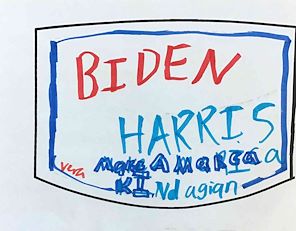 BIDEN
HARRIS
Make AMarica a
KINd agian